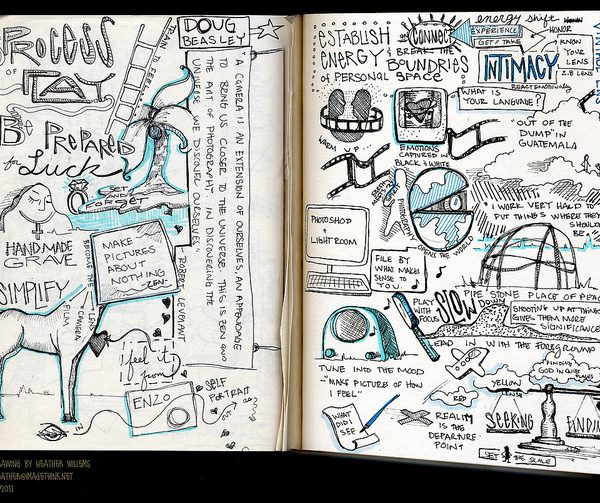 PROCESS
OF
PLAY
BE PREPARED
for
Luck
TRAIN TO FEEL
DOUG
BEASLEY
"A CAMERA IS AN EXTENSION OF OURSELVES, AN APPENDAGE
TO BRING US CLOSER TO THE UNIVERSE. THIS IS ZEN AND
THE ART OF PHOTOGRAPHY IN DISCOVERING THE
UNIVERSE WE DISCOVER OURSELVES."
ROBERT LEVERANT
SET
AND
FORGET
HANDMADE
GRAVE
BECOME THE LENS
CAMERA
FILM
MAKE
PICTURES
ABOUT
NOTHING
-ZEN-
SIMPLIFY
"feel it
from"
ENZO
SELF
PORTRAIT
DRAWING BY HEATHER WILLEMS
HEATHER@IMAGETHINK.NET
2011
ESTABLISH
ENERGY &
OF PERSONAL SPACE
CONNECT
BREAK THE
BOUNDRIES
energy shift
EXPERIENCE
GIFT / TAKE
HONOR
KNOW
YOUR
LENS
2.8 LENS
INTIMACY
REACT EMOTIONALLY
WHAT IS
YOUR LANGUAGE?
WARM UP
EMOTIONS
CAPTURED IN
BLACK & WHITE
"OUT OF THE
DUMP" IN
GUATEMALA
PHOTOGRAPHY
OPENS THE WORLD
"I WORK VERY HARD TO
PUT THINGS WHERE THEY
SHOULD
BE"
PHOTOSHOP
+
LIGHTROOM
FILE BY
WHAT MAKES
SENSE TO
YOU.
PIPE STONE PLACE OF PEACE
PLAY
WITH
FOCUS
SLOW
DOWN
SHOOTING UP AT THINGS
GIVES THEM MORE
SIGNIFICANCE
LEAD IN WITH THE FOREGROUND
TUNE INTO THE MOOD
"MAKE PICTURES OF HOW
I FEEL"
FINDING
GOD IN QUIET
PLACES
YELLOW
RED
WHAT
DID I
SEE
REALITY
IS THE
DEPARTURE
POINT
SEEKING
FINDING
SET THE SCALE